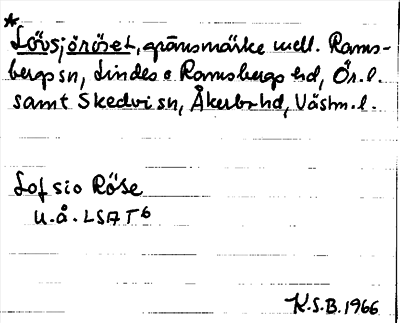 *
Lövsjöröset, gränsmärke mell. Rams-
bergs sn, Lindes o Ramsbergs hd, Ör. l.
samt Skedvi sn, Åkerbo hd, Västm. l.
Lofsio Röse
u.å. LSA T6
K.S.B. 1966